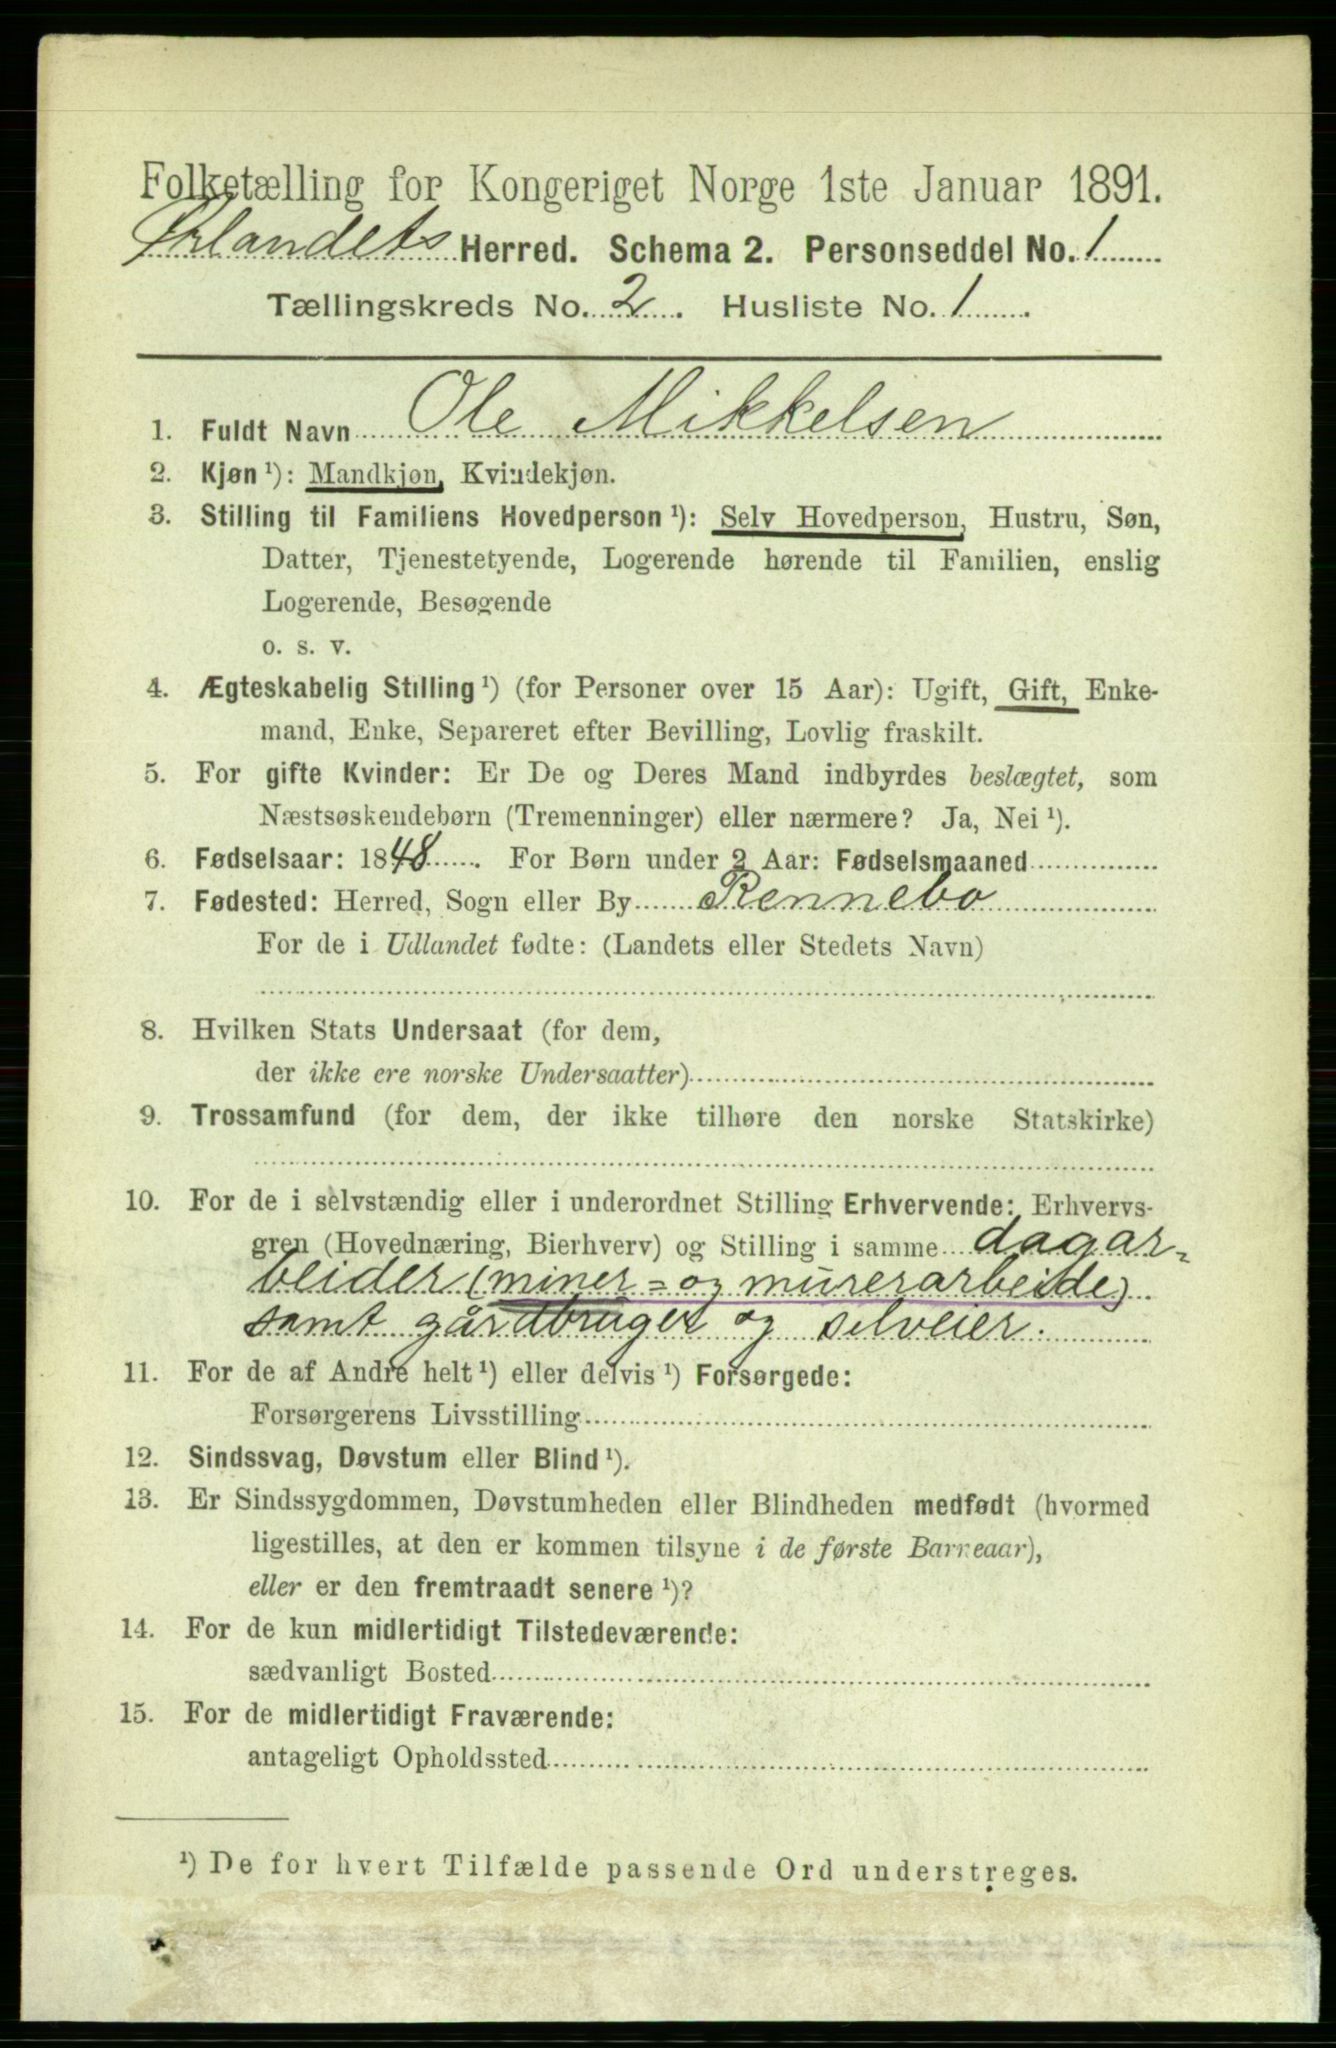 Folketælling for Kongeriget Norge 1ste Januar 1891.
Ørlandets Herred. Schema 2. Personseddel No. 1
Tællingskreds No. 2. Husliste No. 1.
1. Fuldt Navn Ole Mikkelsen
2. Kjøn ¹): Mandkjøn, Kvindekjøn.
3. Stilling til Familiens Hovedperson ¹): Selv Hovedperson, Hustru, Søn,
Datter, Tjenestetyende, Logerende hørende til Familien, enslig
Logerende, Besøgende
o. s. v.
4. Ægteskabelig Stilling ¹) (for Personer over 15 Aar): Ugift, Gift, Enke-
mand, Enke, Separeret efter Bevilling, Lovlig fraskilt.
5. For gifte Kvinder: Er De og Deres Mand indbyrdes beslægtet, som
Næstsøskendebørn (Tremenninger) eller nærmere? Ja, Nei ¹).
6. Fødselsaar: 1848. For Børn under 2 Aar: Fødselsmaaned
7. Fødested: Herred, Sogn eller By Rennebo
For de i Udlandet fødte: (Landets eller Stedets Navn)
8. Hvilken Stats Undersaat (for dem,
der ikke ere norske Undersaatter)
9. Trossamfund (for dem, der ikke tilhøre den norske Statskirke)
10. For de i selvstændig eller i underordnet Stilling Erhvervende: Erhvervs-
gren (Hovednæring, Bierhverv) og Stilling i samme dagar-
beider (miner- og murerarbeide)
samt gårdbruger og selveier.
11. For de af Andre helt ¹) eller delvis ¹) Forsørgede:
Forsørgerens Livsstilling
12. Sindssvag, Døvstum eller Blind ¹).
13. Er Sindssygdommen, Døvstumheden eller Blindheden medfødt (hvormed
ligestilles, at den er kommen tilsyne i de første Barneaar),
eller er den fremtraadt senere ¹)?
14. For de kun midlertidigt Tilstedeværende:
sædvanligt Bosted
15. For de midlertidigt Fraværende:
antageligt Opholdssted
¹) De for hvert Tilfælde passende Ord understreges.